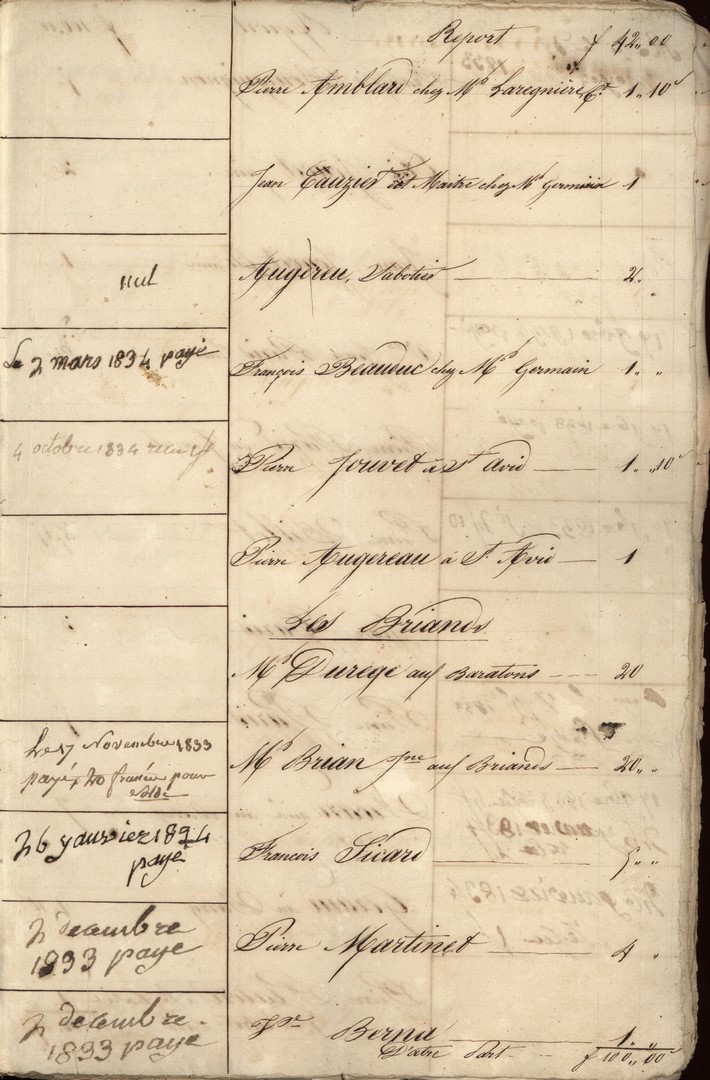 Report f 42.,00
Pierre Amblard chez Mr. Laregnière, 1.,10c
Jean Tauzier Maitre chez Mr Germain 1
nul Augereu, Sabotier 2.,
Le 2 mars 1834 payé François Beauduc chez Mr. Germain 1.,,,
4 octobre 1834 reçu Pierre Jouvet à St Avid 1.,,10c
Pierre Augereau à St. Avid 1
Les Briands
Mr. Durege aux Baratons 20
Le 17 Novembre 1833
payé 20 francs pour
solde
Mr. Brian Jne aux Briands 20.,,
26 yanvier 1834
payé
François Sicard 5.,,
2 decembre
1833 payé
Pierre Martinet 4 ,,
2 decembre.
1833 payé
Berna 1.,,,
D'atre Part f 100.,00